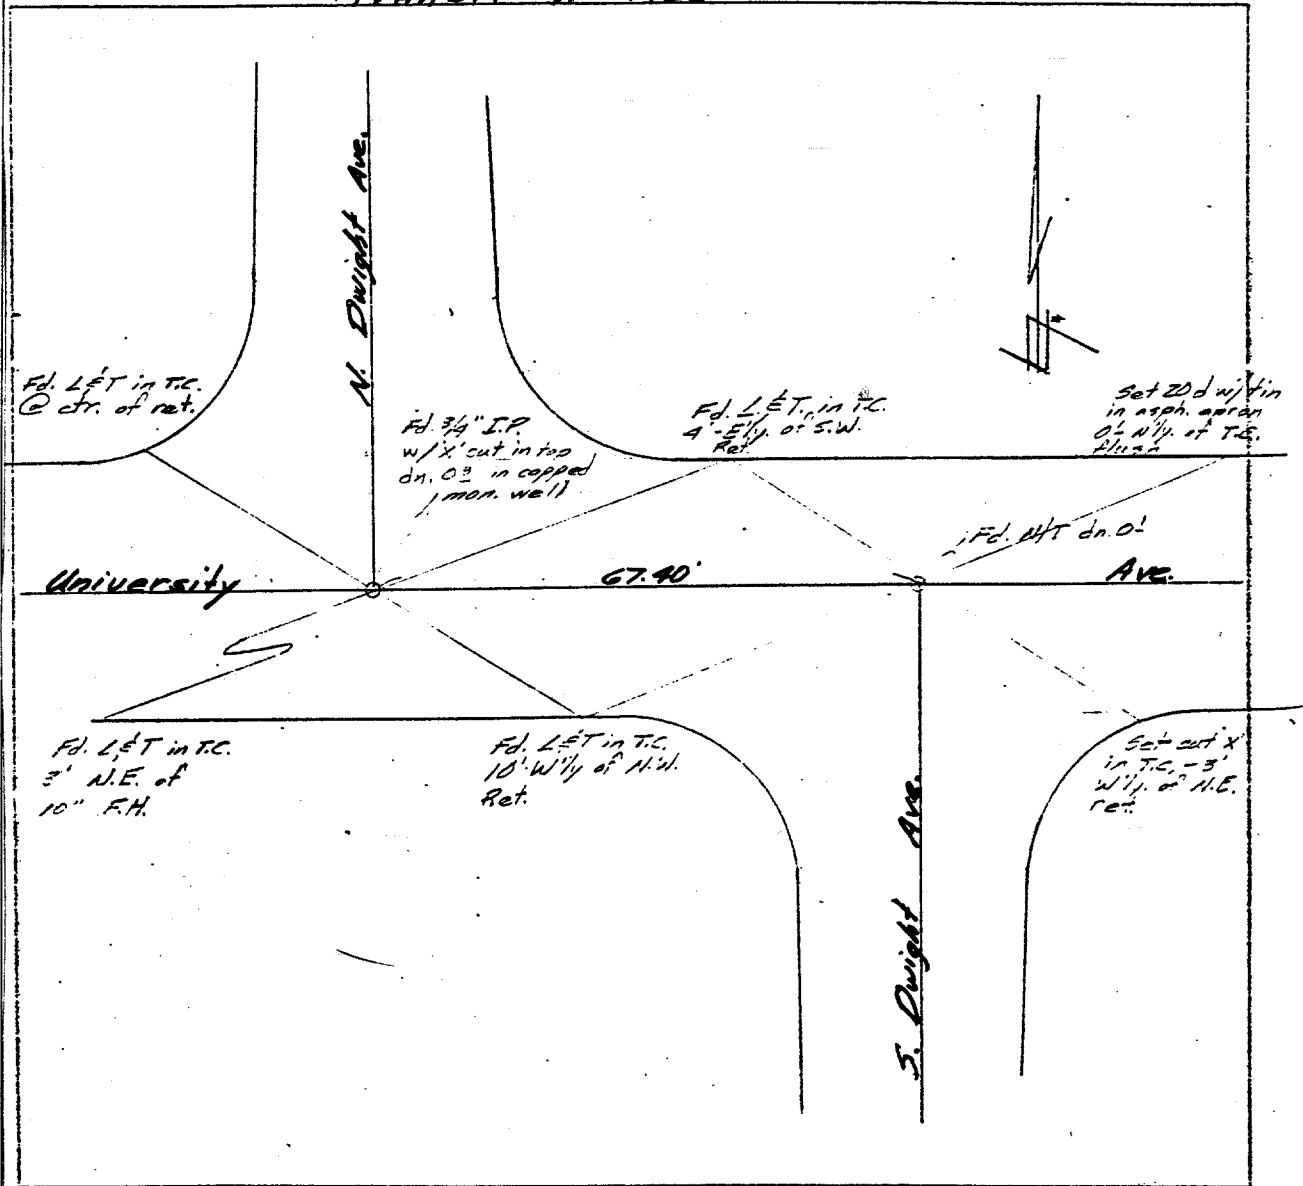 N. Dwight Ave.
Fd. L&T in T.C.
@ ctr. of ret.
Fd. 3/4" I.P.
w/'X' cut in top
dn. 0.3 in capped
mon. well
Fd. L.&T. in T.C.
4'-E'ly. of S.W.
Ret.
Set 20d w/tin
in asph. apron
N'ly. of T.C.
flush
Fd. N/T dn. 0.1
University
67.40'
Ave.
Fd. L&T in T.C.
3' N.E. of
10" F.H.
Fd. L&T in T.C.
10'-W'ly of N.W.
Ret.
Set cut X
in T.C. - 3'
W'ly. of N.E.
ret.
S. Dwight Ave.